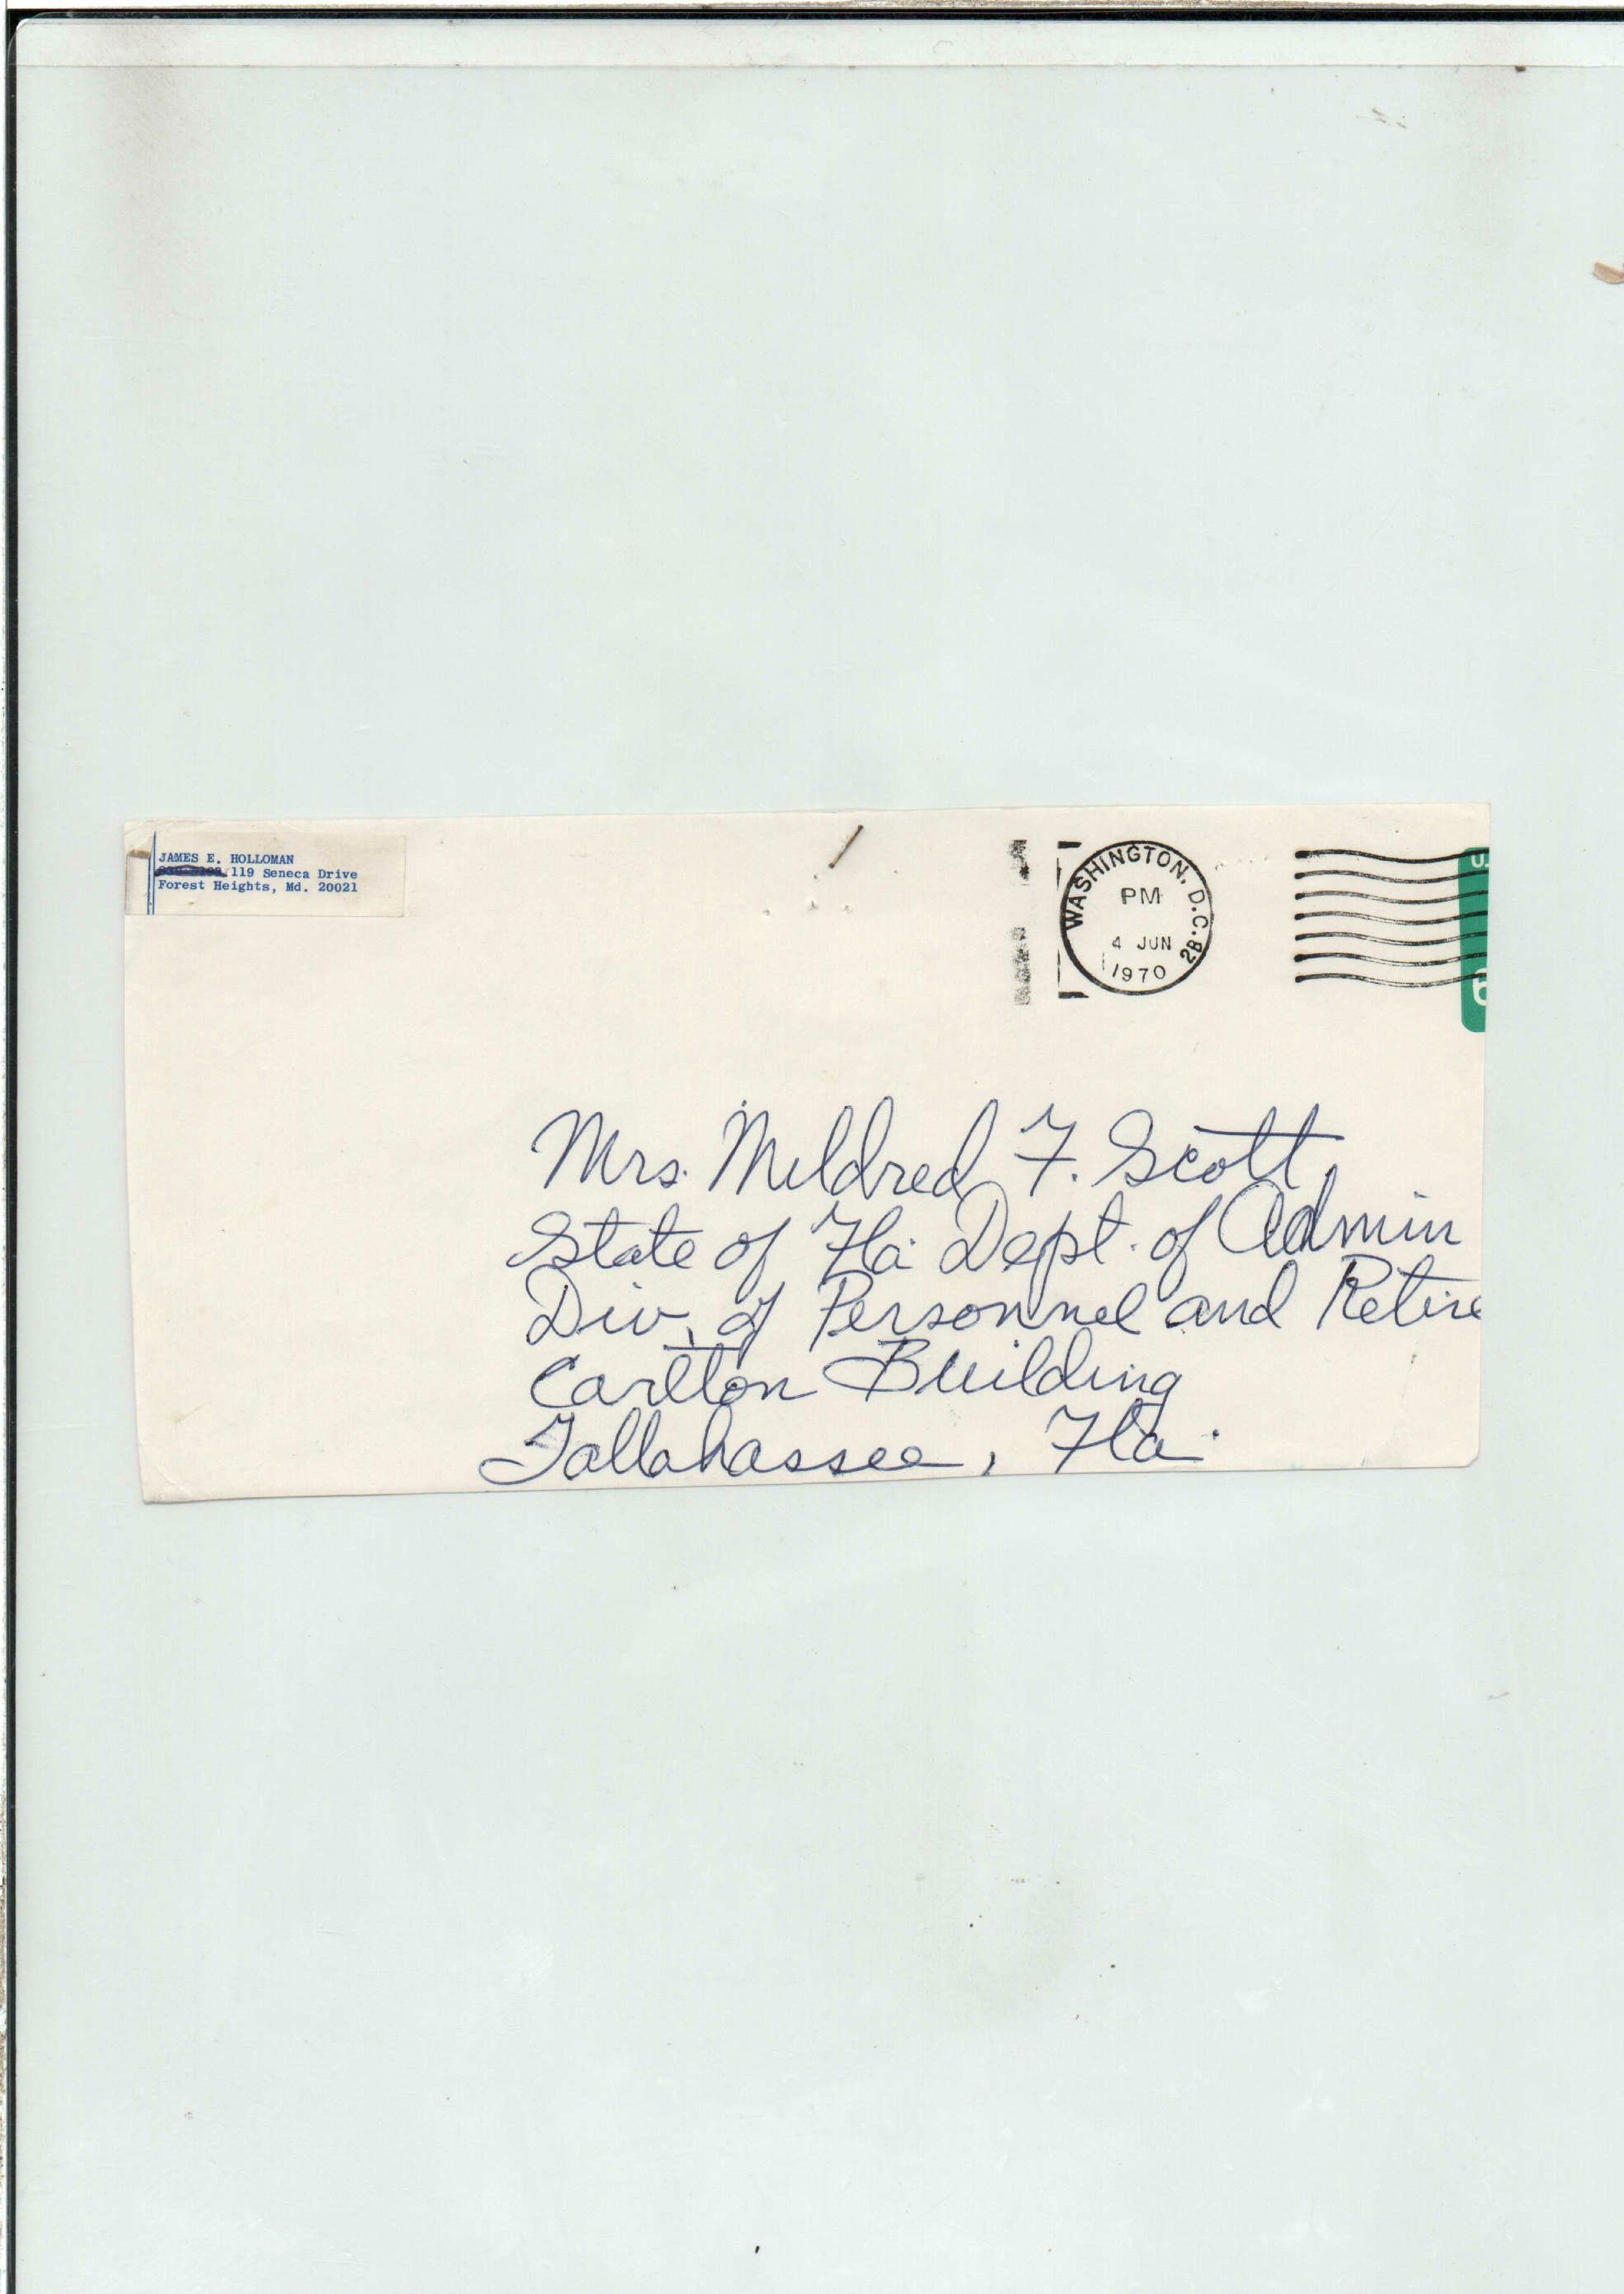 JAMES E. HOLLOMAN
119 Seneca Drive
Forest Heights, Md. 20021
WASHINGTON, D.C. 2B
PM
4 JUN
1970
U.
6
Mrs. Mildred F. Scott,
State of Fla. Dept. of Admin
Div. of Personnel and Retire
Carlton Building
Tallahassee, Fla.